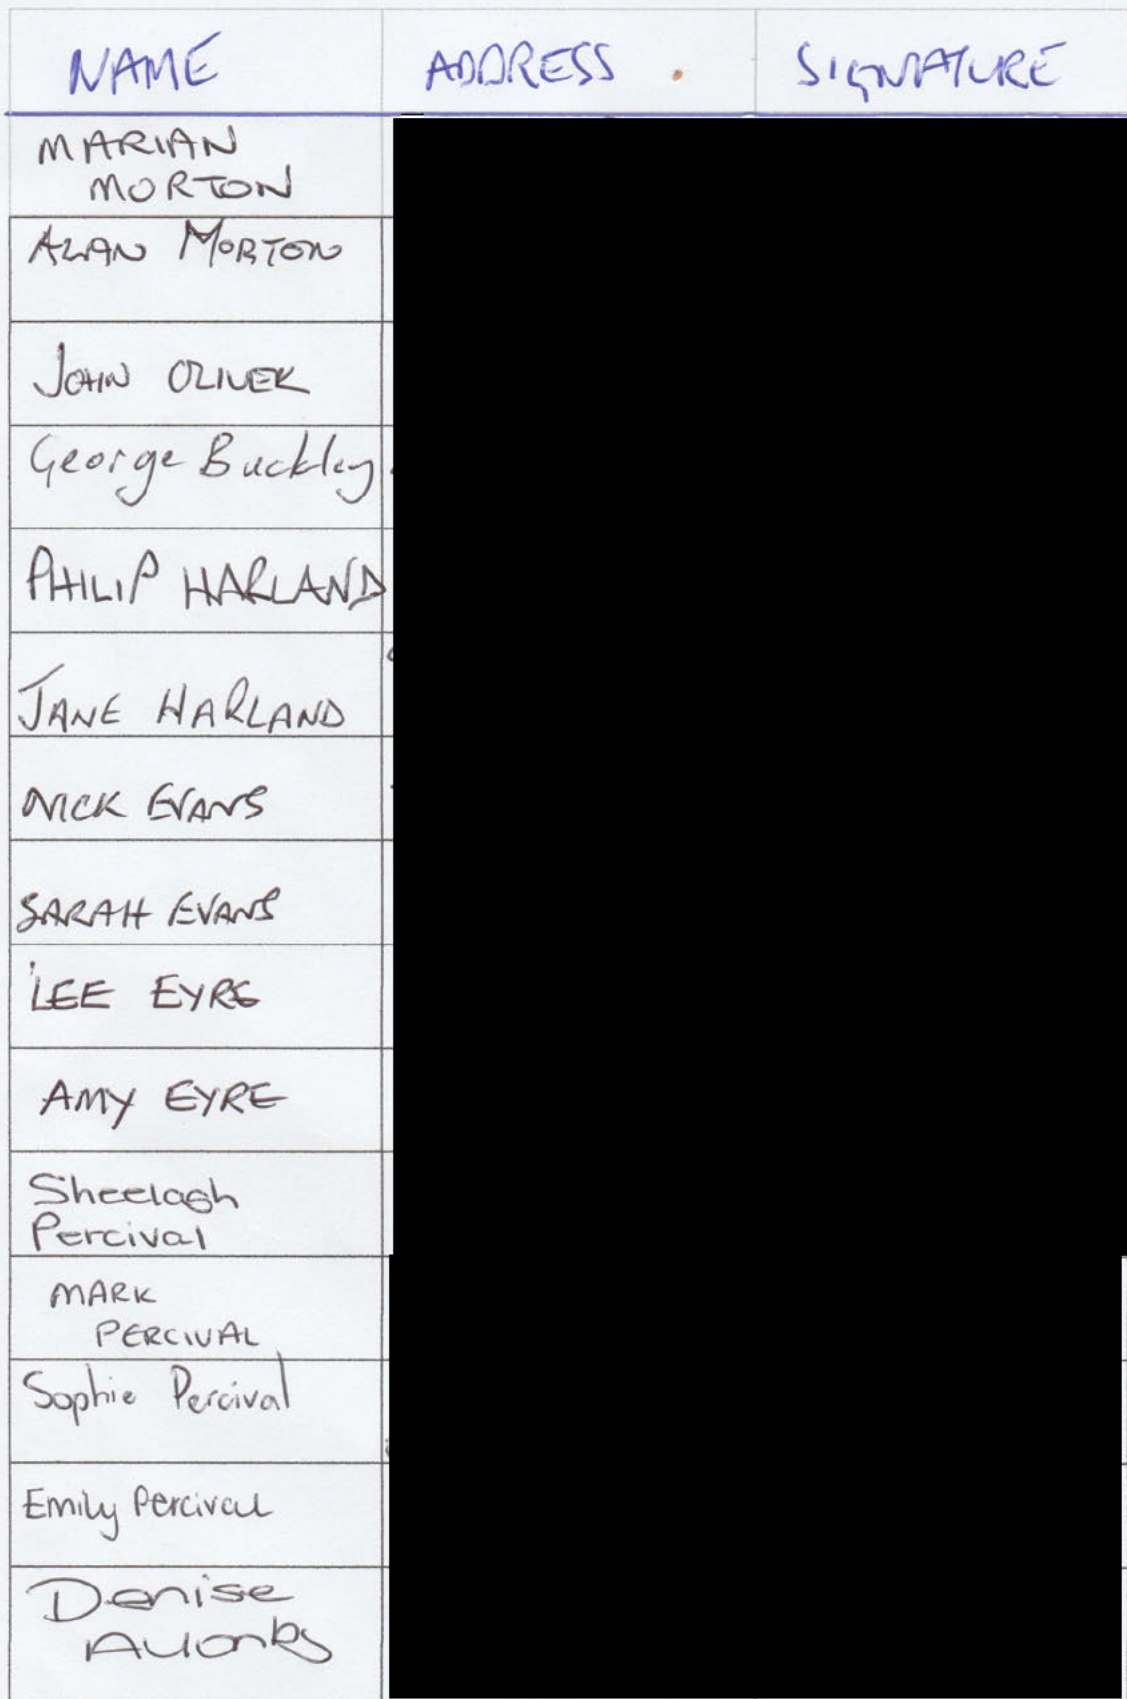 NAME ADDRESS SIGNATURE
MARIAN
MORTON
ALAN MORTON
JOHN OLIVER
George Buckley
PHILIP HARLAND
JANE HARLAND
NICK EVANS
SARAH EVANS
LEE EYRE
AMY EYRE
Sheelagh
Percival
MARK
PERCIVAL
Sophie Percival
Emily Percival
Denise